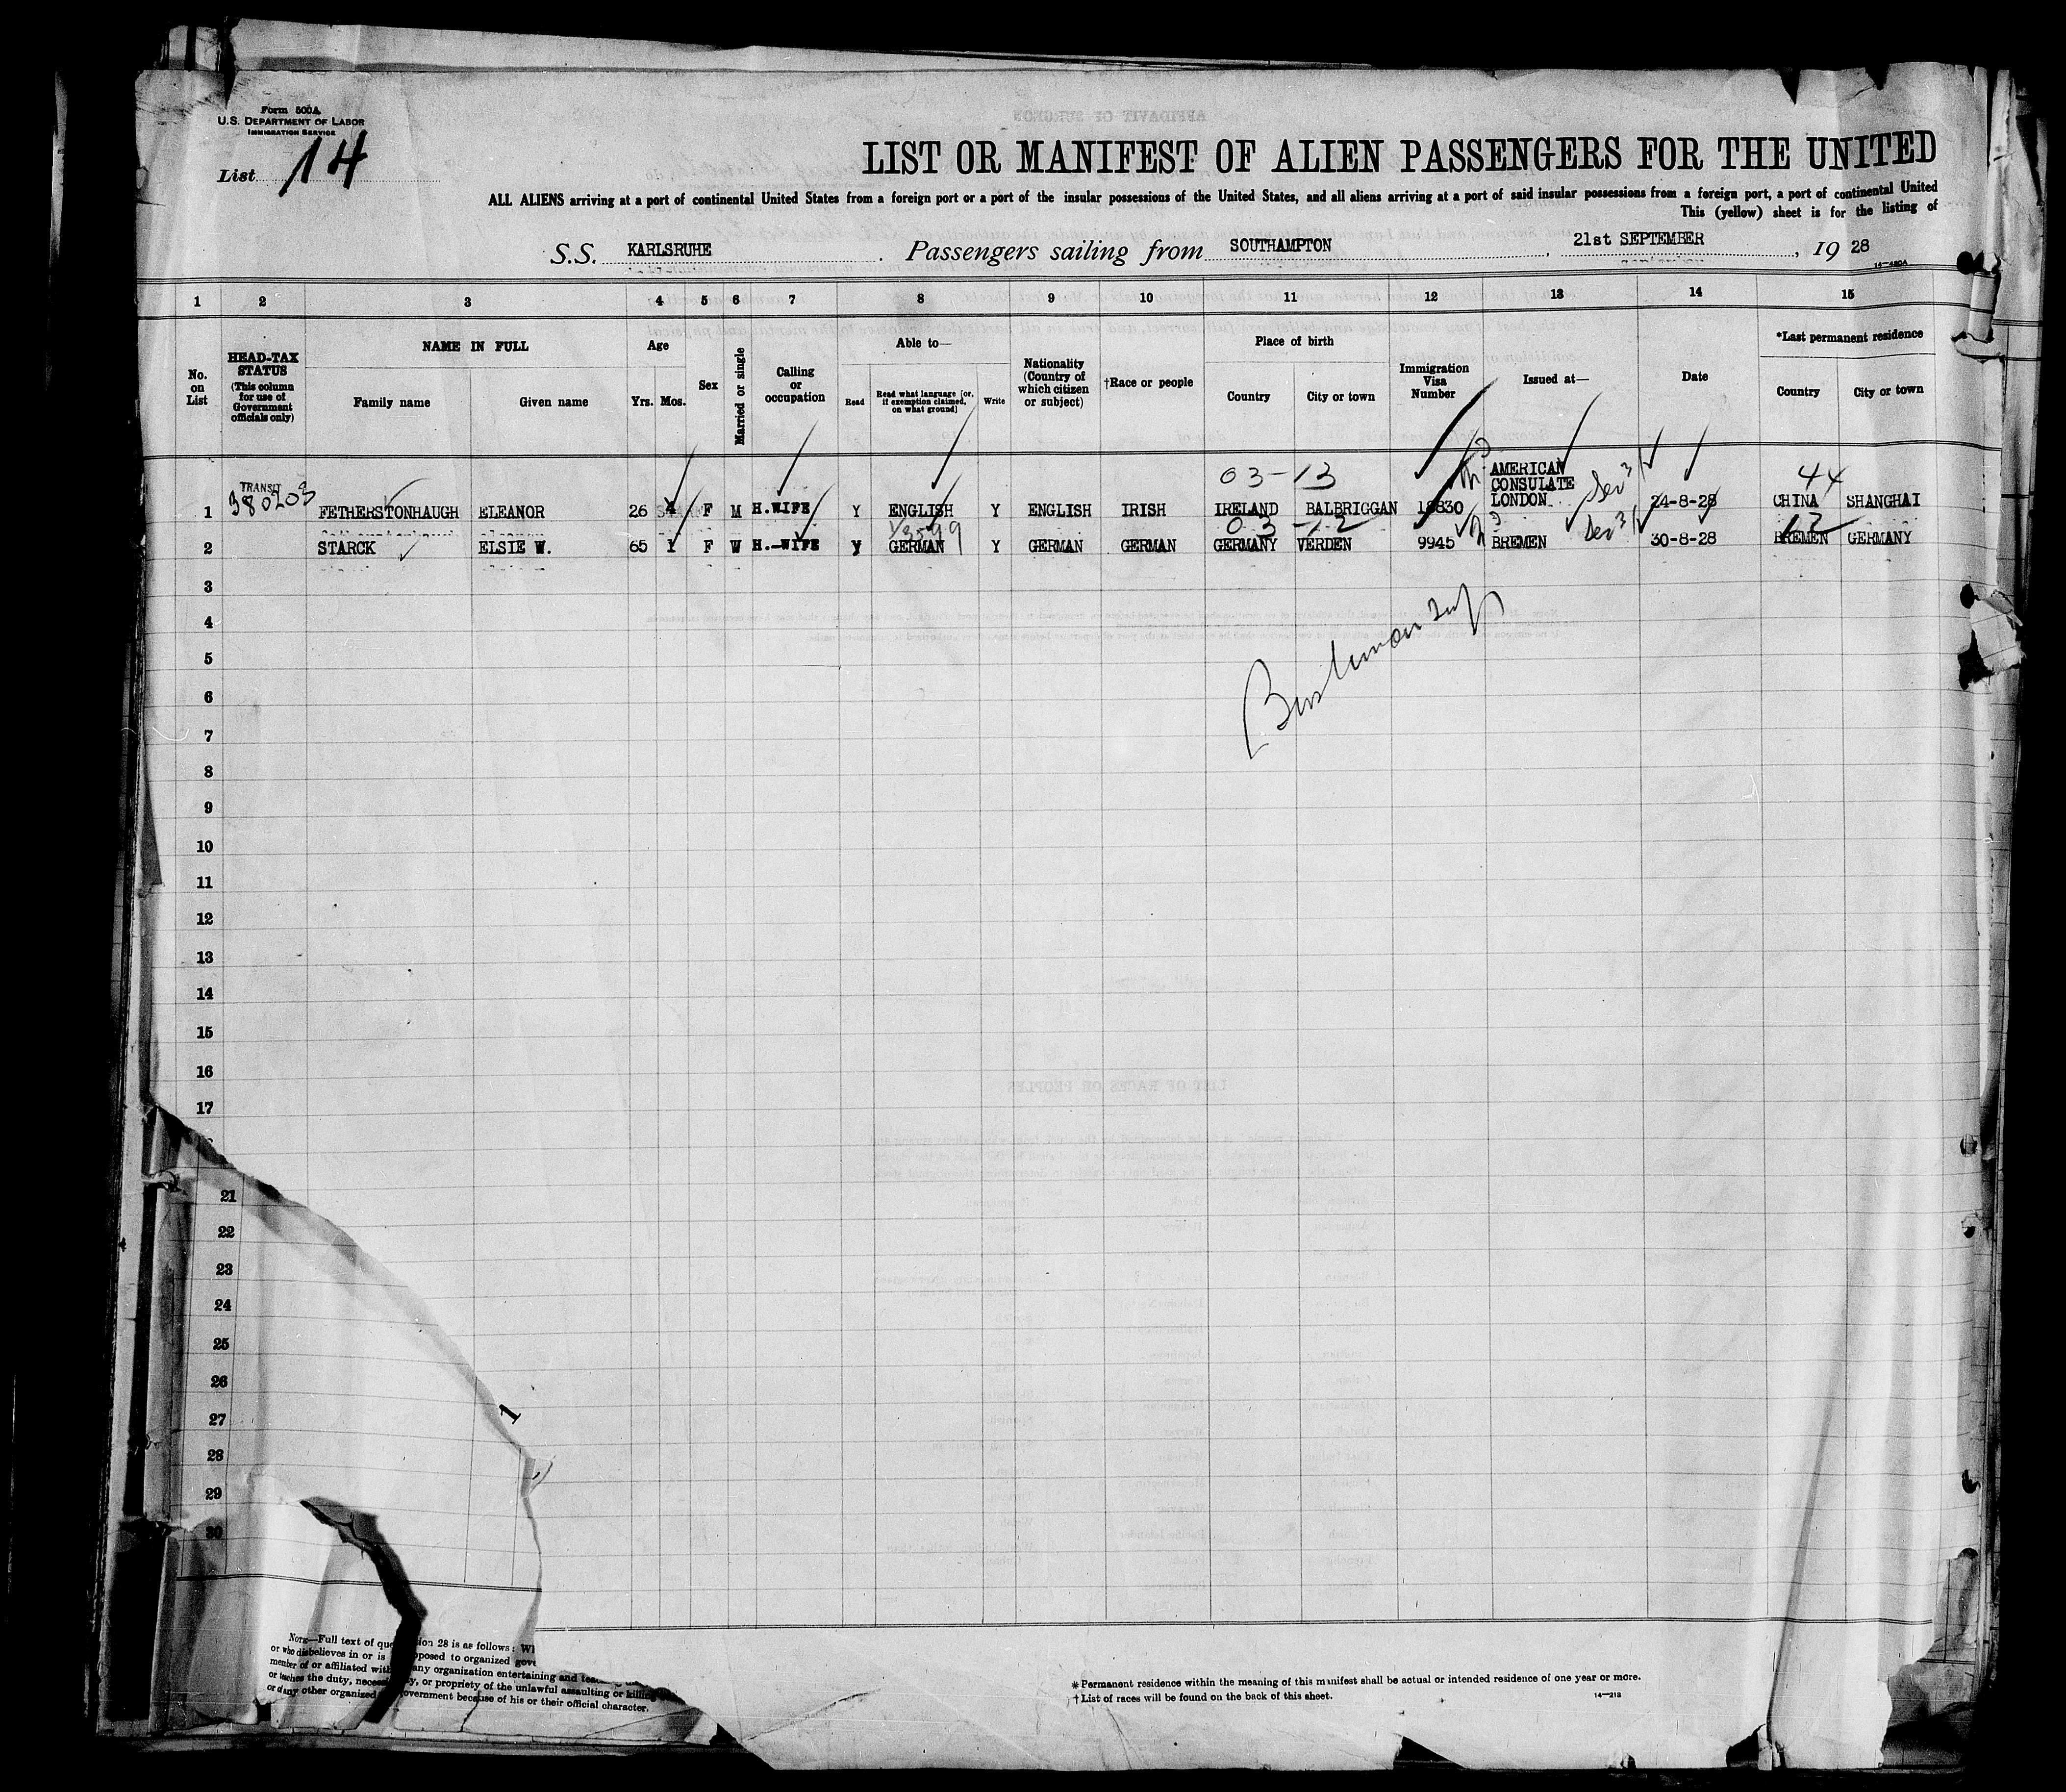 Form 500A
U.S. DEPARTMENT OF LABOR
IMMIGRATION SERVICE
List 14
LIST OR MANIFEST OF ALIEN PASSENGERS FOR THE UNITED
ALL ALIENS arriving at a port of continental United States from a foreign port or a port of the insular possessions of the United States, and all aliens arriving at a port of said insular possessions from a foreign port, a port of continental United
This (yellow) sheet is for the listing of
S.S. KARLSRUHE . Passengers sailing from SOUTHAMPTON , 21st SEPTEMBER , 19 28
14—480A
1 2 3 4 5 6 7 8 9 10 11 12 13 14 15
No. on List
HEAD-TAX STATUS (This column for use of Government officials only)
NAME IN FULL
Family name Given name
Age
Yrs. Mos.
Sex
Married or single
Calling or occupation
Able to—
Read Read what language [or, if exemption claimed, on what ground] Write
Nationality (Country of which citizen or subject)
†Race or people
Place of birth
Country City or town
Immigration Visa Number
Issued at—
Date
*Last permanent residence
Country City or town
03-13 44
AMERICAN
CONSULATE
TRANSIT
380203
1 FETHERSTONHAUGH ELEANOR 26 4 F M H.WIFE Y ENGLISH Y ENGLISH IRISH IRELAND BALBRIGGAN LONDON 24-8-28 CHINA SHANGHAI
03-12 12
2 STARCK ELSIE W. 65 1 F W H.-WIFE Y GERMAN Y GERMAN GERMAN GERMANY VERDEN 9945 BREMEN 30-8-28 BREMEN GERMANY
3
4
5
6
7
8
9
10
11
12
13
14
15
16
17
21
22
23
24
25
26
27
28
29
30
1
NOTE—Full text of question 28 is as follows:
or who disbelieves in or is opposed to organized
member of or affiliated with any organization entertaining and
or teaches the duty, necessity, or propriety of the unlawful assaulting or killing
or of any other organized government because of his or their official character.
* Permanent residence within the meaning of this manifest shall be actual or intended residence of one year or more.
† List of races will be found on the back of this sheet.
14—213